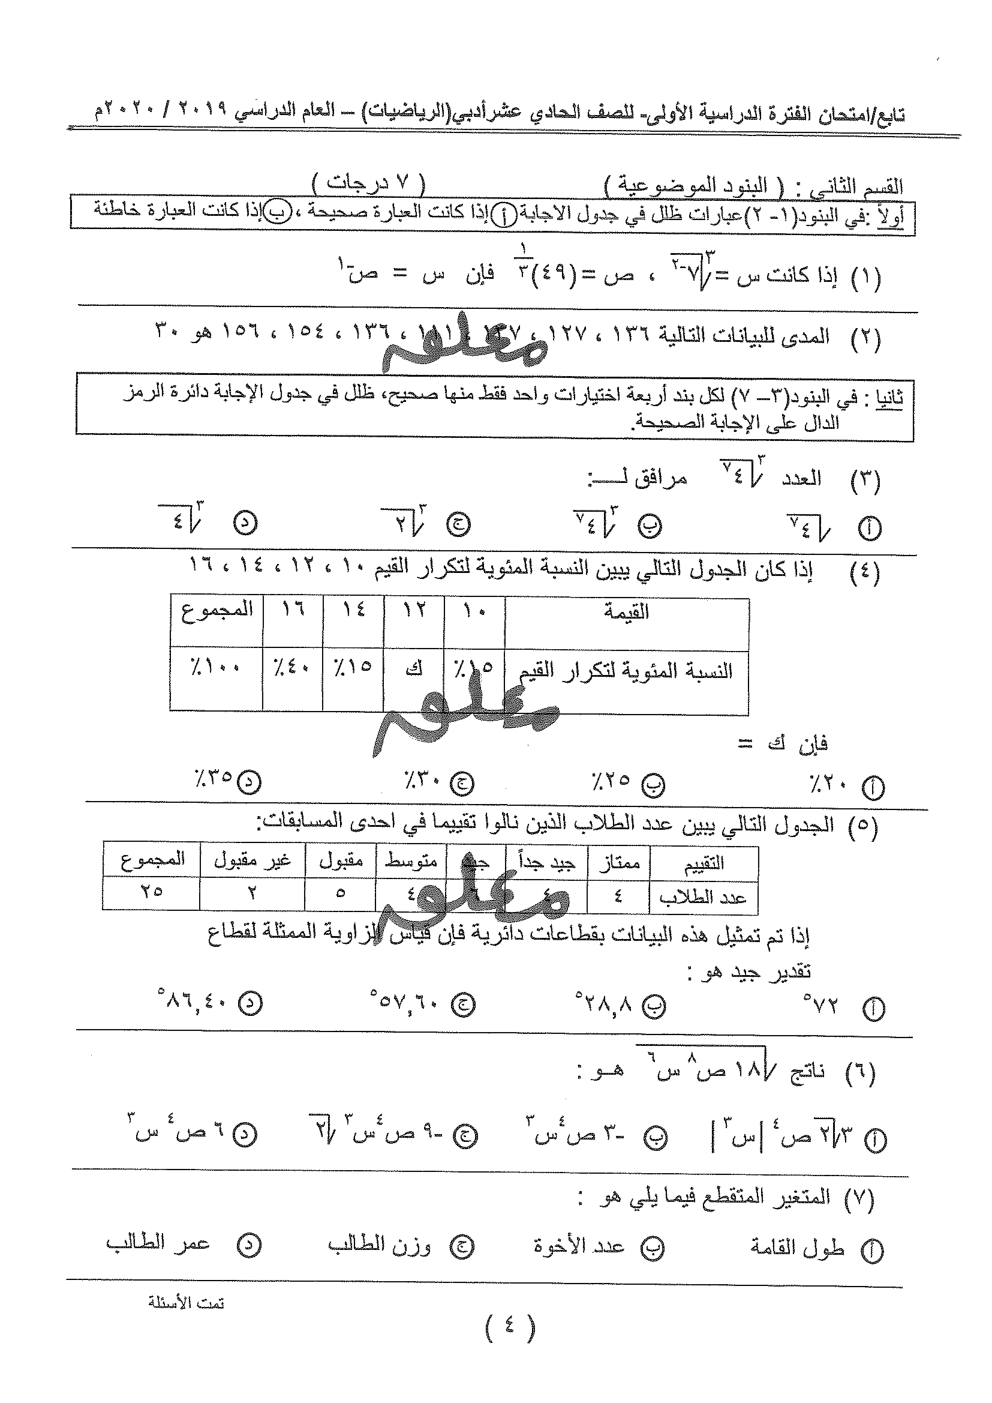 تابع/امتحان الفترة الدراسية الأولى- للصف الحادي عشرأدبي(الرياضيات) – العام الدراسي ٢٠١٩ / ٢٠٢٠م
القسم الثاني : ( البنود الموضوعية ) ( ٧ درجات )
أولاً :في البنود(١- ٢)عبارات ظلل في جدول الاجابة أ إذا كانت العبارة صحيحة ، ب إذا كانت العبارة خاطئة
(١) إذا كانت س = ∛(٧⁻²) ، ص = (٤٩)^(١/٣) فإن س = ص⁻¹
(٢) المدى للبيانات التالية ١٣٦ ، ١٢٧ ، ، ١٣٦ ، ١٥٤ ، ١٥٦ هو ٣٠
معلق
ثانيا : في البنود(٣– ٧) لكل بند أربعة اختيارات واحد فقط منها صحيح، ظلل في جدول الإجابة دائرة الرمز
الدال على الإجابة الصحيحة.
(٣) العدد ∛(٤^٧) مرافق لــــ:
أ √(٤^٧) ب ∛(٤^٧) ج ∛٢ د ∛٤
(٤) إذا كان الجدول التالي يبين النسبة المئوية لتكرار القيم ١٠ ، ١٢ ، ١٤ ، ١٦
القيمة ١٠ ١٢ ١٤ ١٦ المجموع
النسبة المئوية لتكرار القيم ١٥٪ ك ١٥٪ ٤٠٪ ١٠٠٪
معلق
فإن ك =
أ ٢٠٪ ب ٢٥٪ ج ٣٠٪ د ٣٥٪
(٥) الجدول التالي يبين عدد الطلاب الذين نالوا تقييما في احدى المسابقات:
التقييم ممتاز جيد جداً جيد متوسط مقبول غير مقبول المجموع
عدد الطلاب ٤ ٤ ٦ ٤ ٥ ٢ ٢٥
معلق
إذا تم تمثيل هذه البيانات بقطاعات دائرية فإن قياس الزاوية الممثلة لقطاع
تقدير جيد هو :
أ ٧٢° ب ٢٨,٨° ج ٥٧,٦٠° د ٨٦,٤٠°
(٦) ناتج √(١٨ ص^٨ س^٦) هـو :
أ ٣√٢ ص^٤ |س^٣| ب -٣ ص^٤ س^٣ ج -٩ ص^٤ س^٣ √٢ د ٦ ص^٤ س^٣
(٧) المتغير المتقطع فيما يلي هو :
أ طول القامة ب عدد الأخوة ج وزن الطالب د عمر الطالب
تمت الأسئلة
( ٤ )